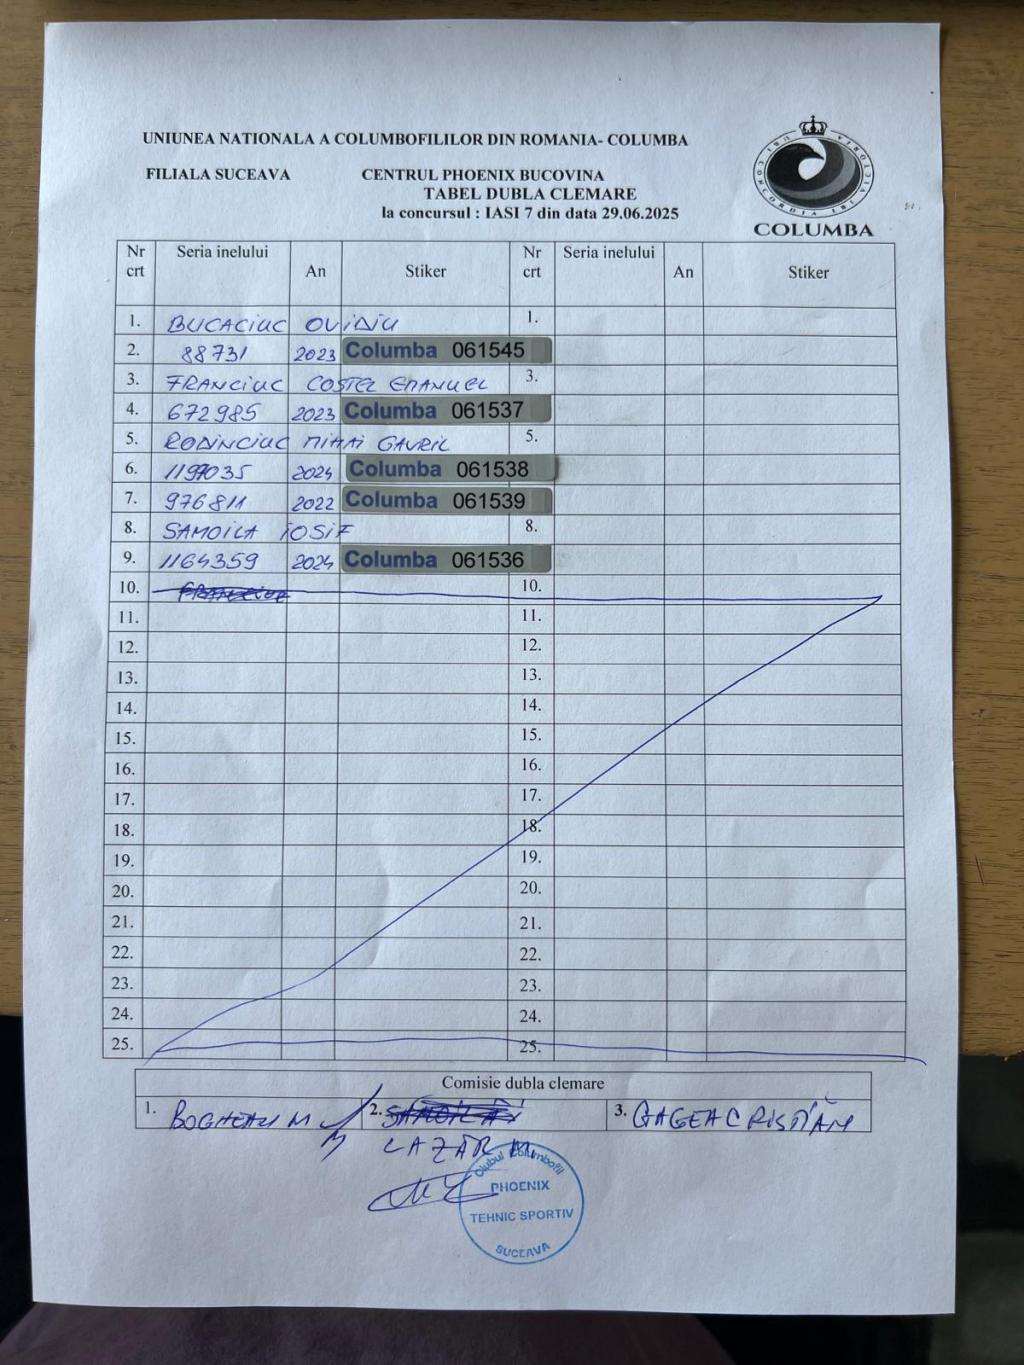 UNIUNEA NATIONALA A COLUMBOFILILOR DIN ROMANIA- COLUMBA
FILIALA SUCEAVA CENTRUL PHOENIX BUCOVINA
TABEL DUBLA CLEMARE
la concursul : IASI 7 din data 29.06.2025
COLUMBA
Nr crt Seria inelului An Stiker Nr crt Seria inelului An Stiker
1. BUCACIUC OVIDIU 1.
2. 88731 2023 Columba 061545
3. FRANCIUC COSTEL EMANUEL 3.
4. 672985 2023 Columba 061537
5. RODINCIUC MIHAI GAVRIL 5.
6. 1199035 2024 Columba 061538
7. 976811 2022 Columba 061539
8. SAMOILA IOSIF 8.
9. 1164359 2024 Columba 061536
10. 10.
11. 11.
12. 12.
13. 13.
14. 14.
15. 15.
16. 16.
17. 17.
18. 18.
19. 19.
20. 20.
21. 21.
22. 22.
23. 23.
24. 24.
25. 25.
Comisie dubla clemare
1. BOGHEAN M 2. 3. GAGEA CRISTIAN
LAZĂR M
Clubul Columbofil
PHOENIX
TEHNIC SPORTIV
SUCEAVA